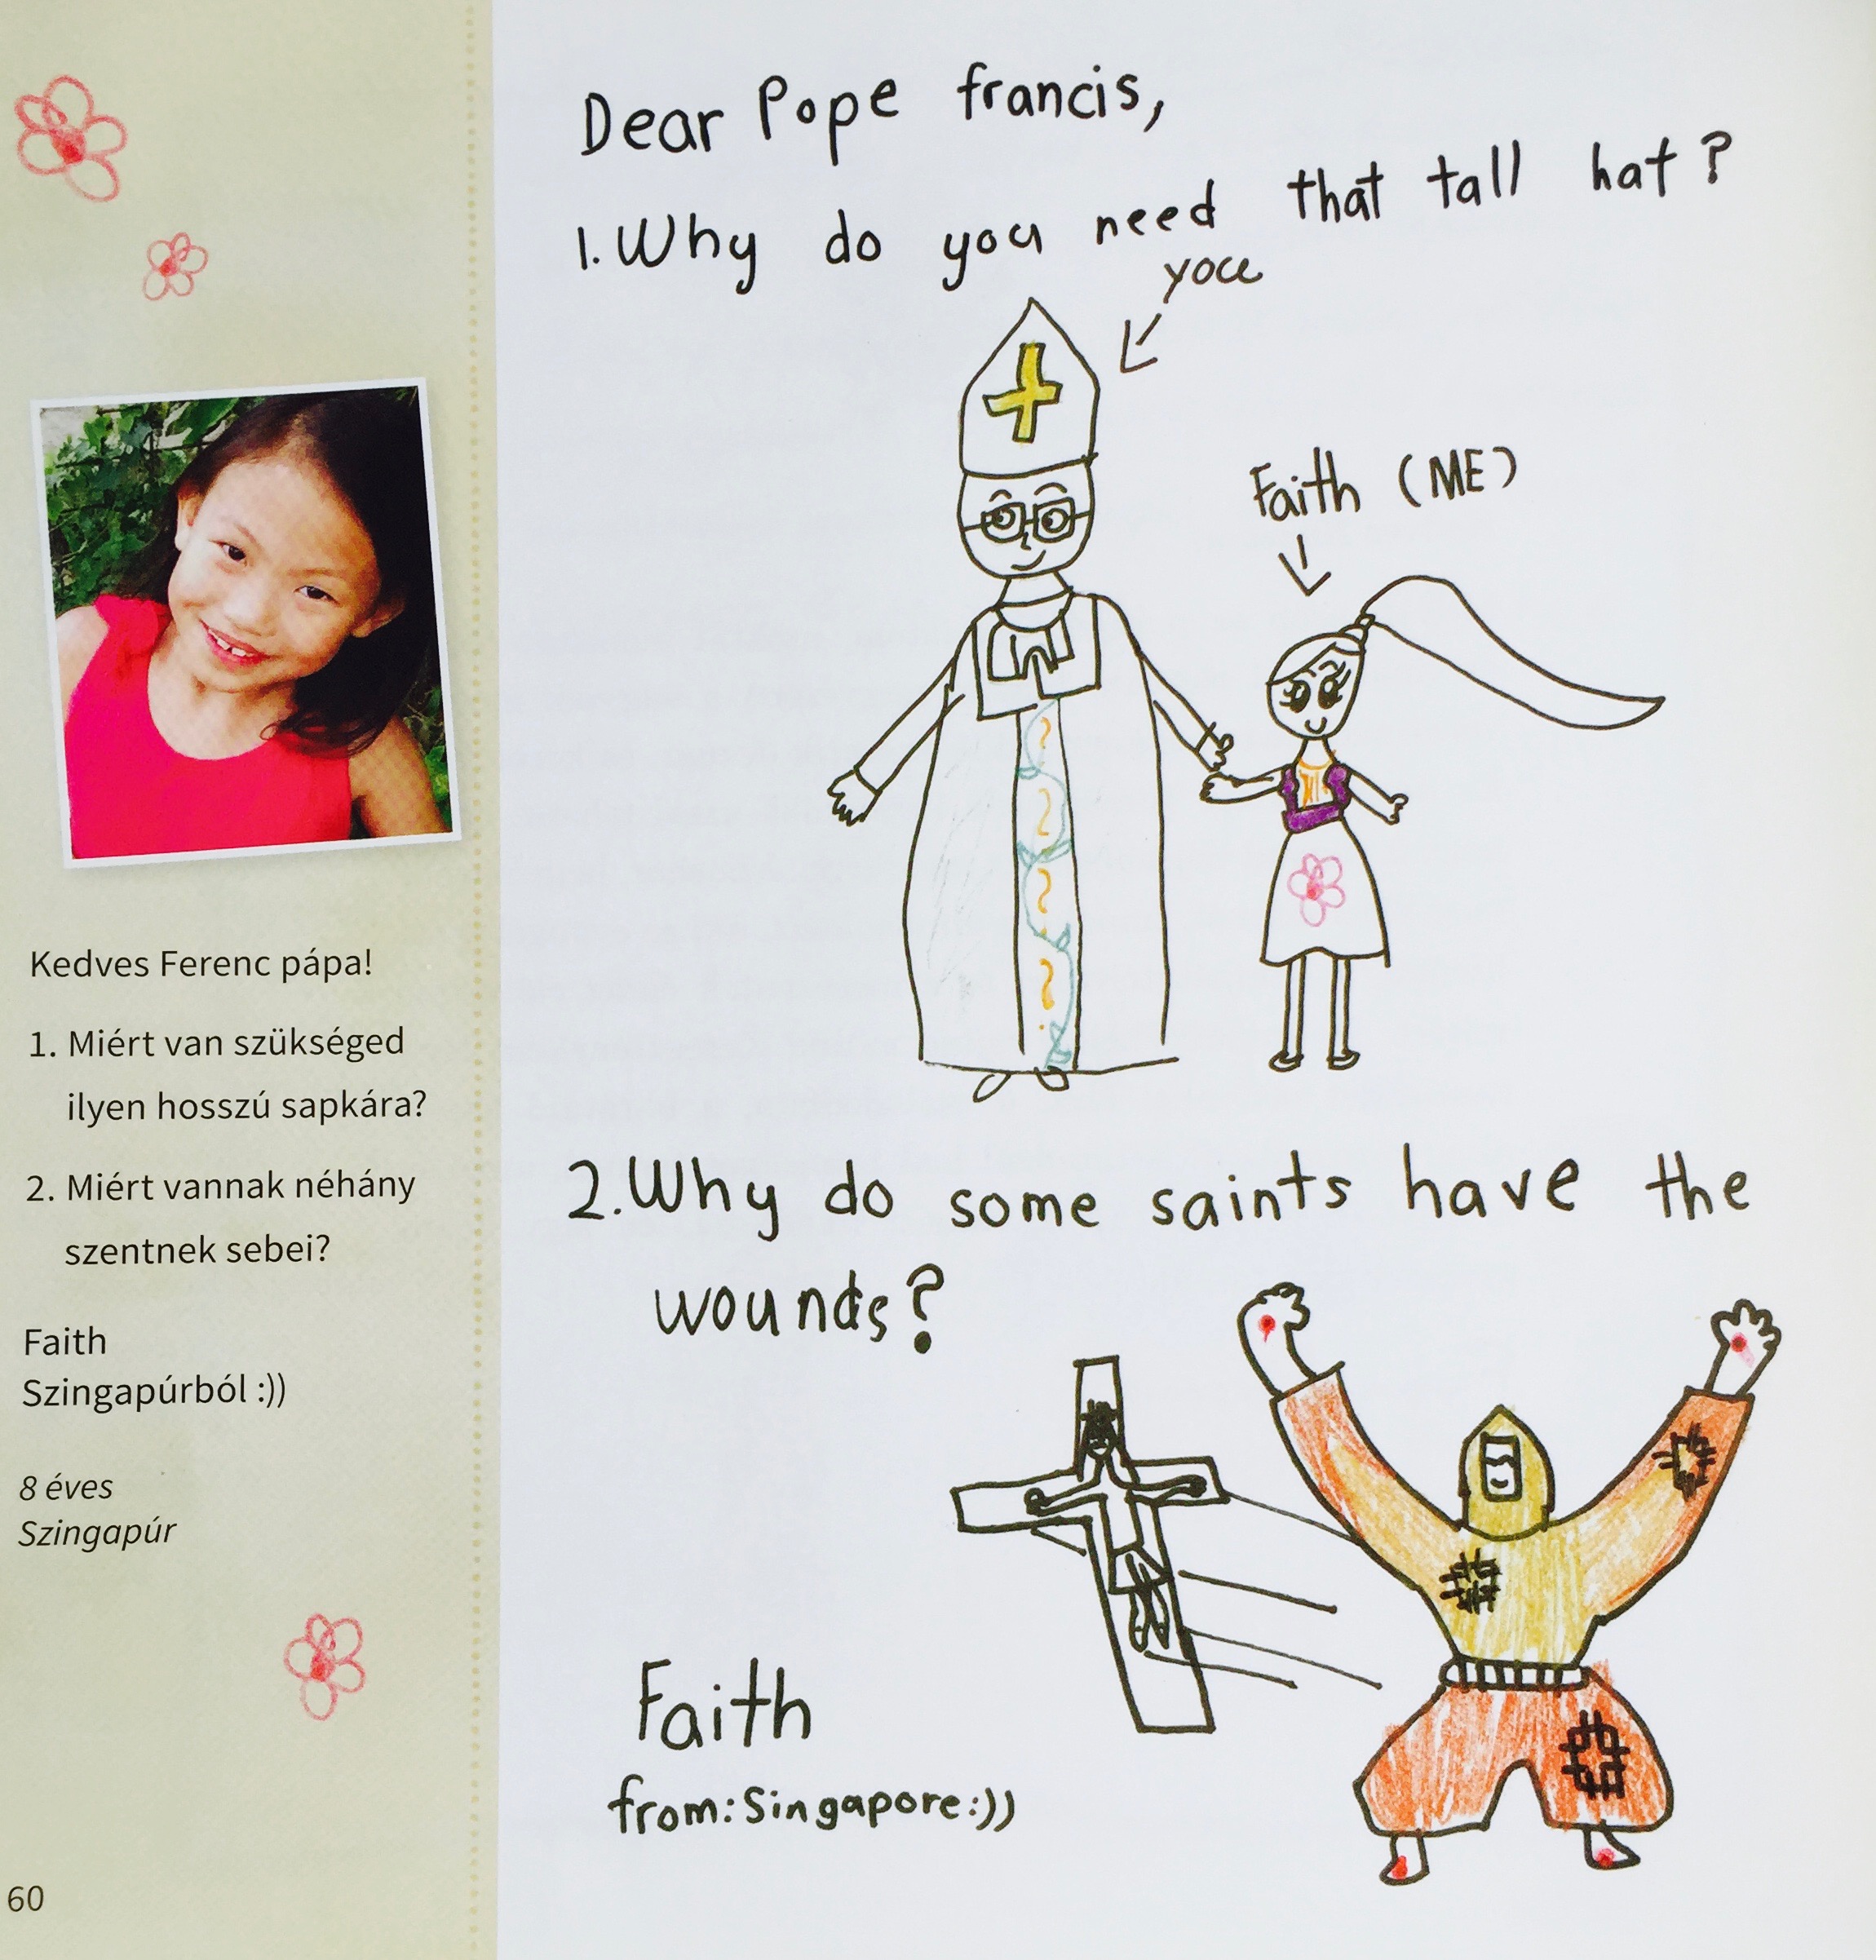 Dear Pope francis,
1. Why do you need that tall hat?
you
Faith (ME)
2. Why do some saints have the
wounds?
Faith
from: Singapore :))
Kedves Ferenc pápa!
1. Miért van szükséged
ilyen hosszú sapkára?
2. Miért vannak néhány
szentnek sebei?
Faith
Szingapúrból :))
8 éves
Szingapúr
60